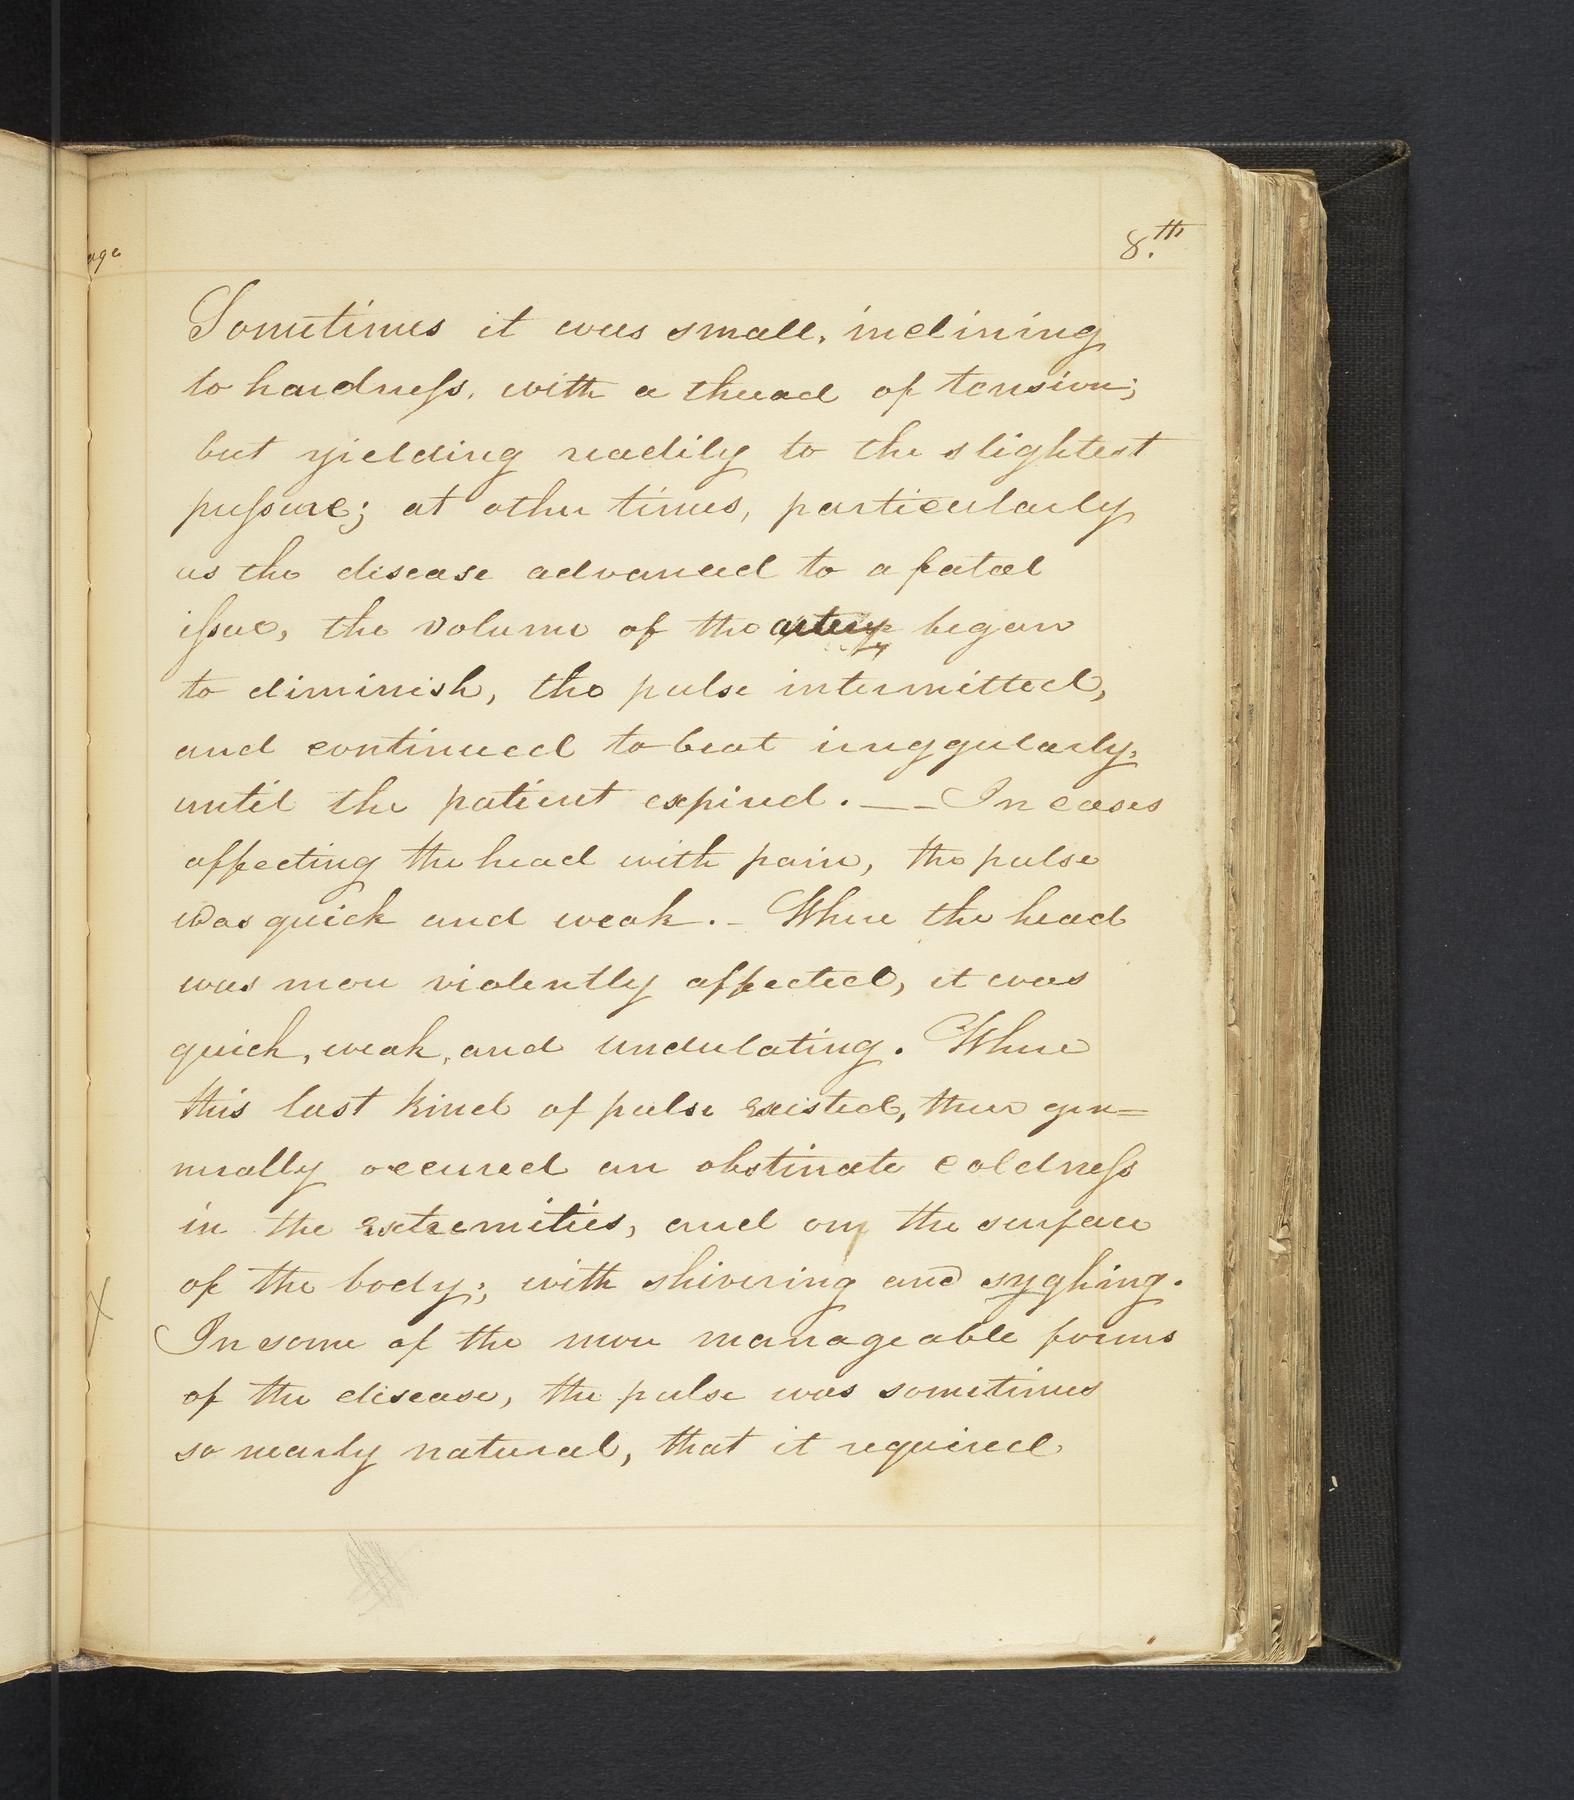 8.th
Sometimes it was small, inclining
to hardness, with a thread of tension;
but yielding readily to the slightest
pressure; at other times, particularly
as the disease advanced to a fatal
issue, the volume of the artery began
to diminish, the pulse intermitted,
and continued to beat irreggularly,
until the patient expired. — — In cases
affecting the head with pain, the pulse
was quick and weak. - Where the head
was more violently affected, it was
quick, weak, and undulating. Where
this last kind of pulse existed, there gen=
nerally occured an obstinate coldness
in the extremities, and on the surface
of the body; with shivering and syghing.
In some of the more manageable forms
of the disease, the pulse was sometimes
so nearly natural, that it required